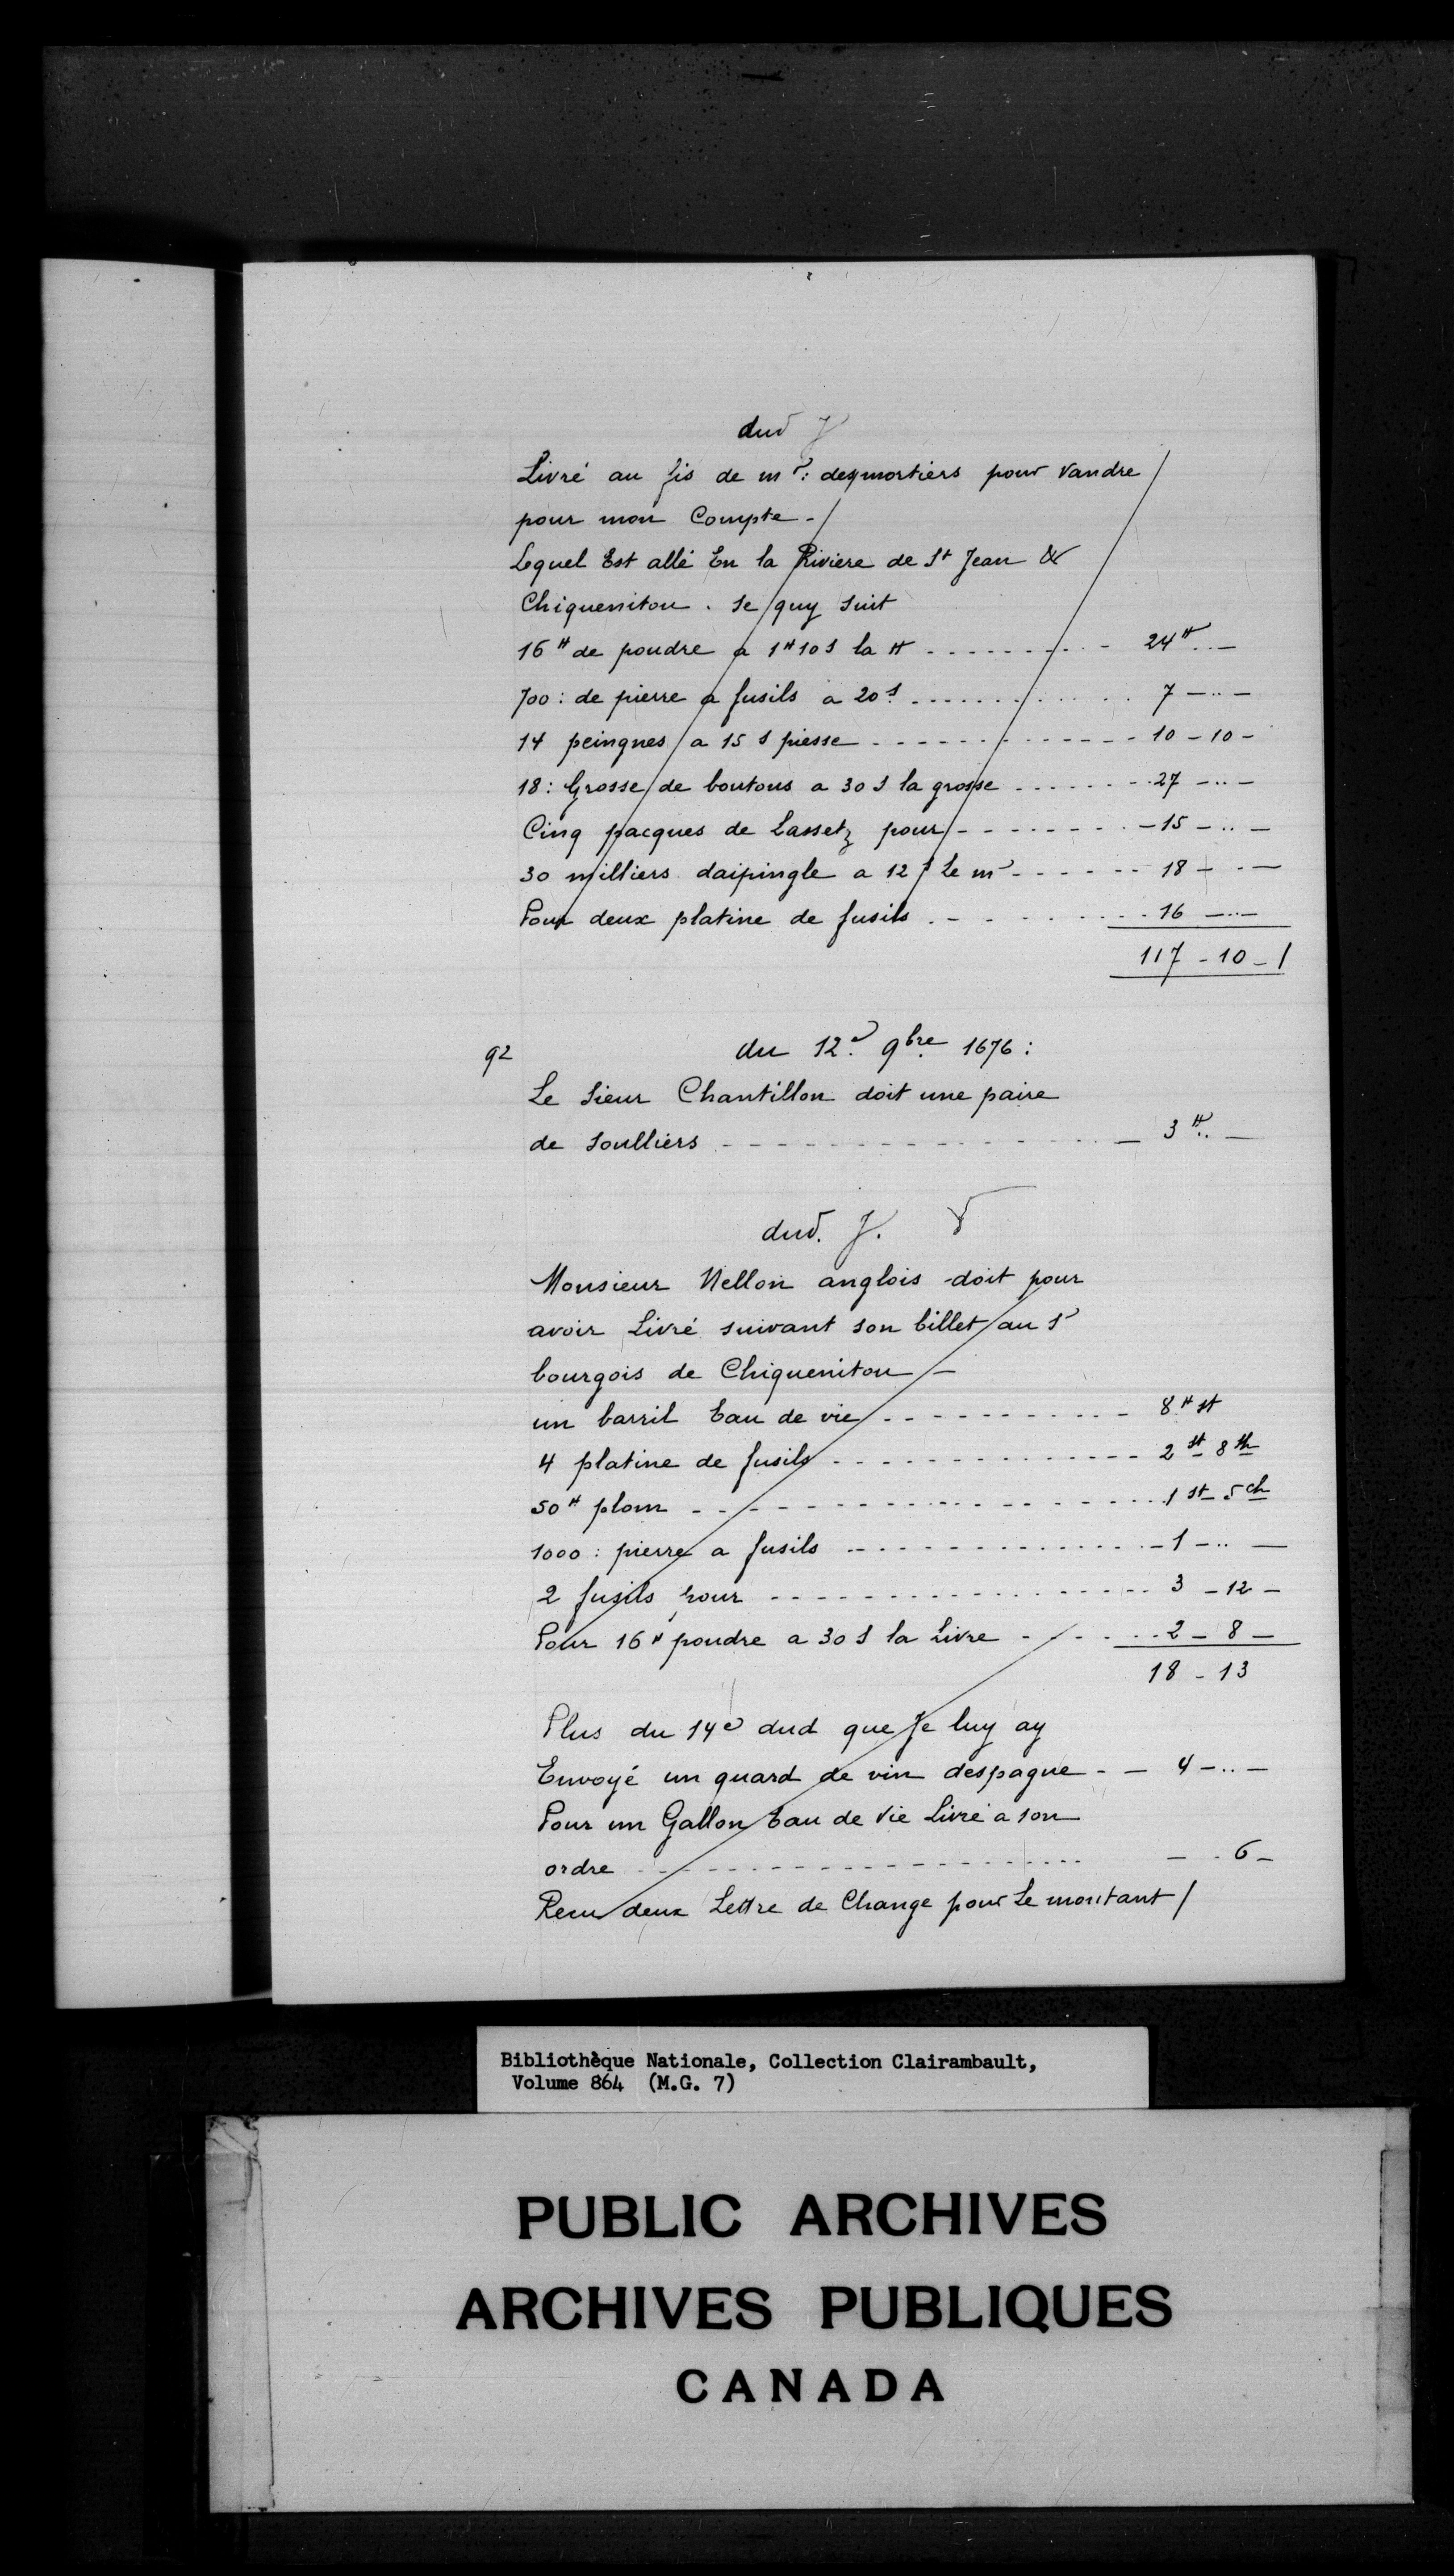 dud J
Livré au fis de mr: desmortiers pour vandre
pour mon Compte - /
Lequel Est allé En la Riviere de St Jean &
Chiquenitou . se quy suit
16 # de poudre a 1 # 10 s la # - - - - - - - - - - 24 # .. —
700 : de pierre a fusils a 20 s . . . . . . . . . . . . 7 — .. —
14 peingnes a 15 s piesse - - - - - - - - - - - - - 10 - 10 -
18 : Grosse de boutons a 30 s la grosse - - - - - - - 27 — .. —
Cinq pacques de Lassetz pour - - - - - - - - - 15 - .. —
30 milliers daipingle a 12 s Le m - - - - - - 18 - .. —
Pour deux platine de fusils . - - - - - - - - - 16 — .. —
117 - 10 - /
92 du 12e. 9bre 1676 :
Le sieur Chantillon doit une paire
de soulliers - - - - - - - - - - - - - - - - 3 # .. —
dud. J.
Monsieur Nellon anglois doit pour
avoir Livré suivant son billet au sr
bourgois de Chiquenitou —
un barril Eau de vie - - - - - - - - - - - 8 # st
4 platine de fusils - - - - - - - - - - - - - - 2 st 8 sh
50 # plom - - - - - - - - - - - - - - - - - - 1 st 5 ch
1000 : pierre a fusils - - - - - - - - - - - - - - 1 - .. —
2 fusils pour - - - - - - - - - - - - - - - - - 3 - 12 -
Pour 16 # poudre a 30 s la Livre - - - - - - 2 - 8 —
18 - 13
Plus du 14e dud que Je luy ay
Envoyé un quard de vin despagne - - 4 - .. —
Pour un Gallon Eau de Vie Livré a son
ordre - - - - - - - - - - - - - - - - - - - — . 6 -
Recu deux Lettre de Change pour Le montant /
Bibliothèque Nationale, Collection Clairambault,
Volume 864 (M.G. 7)
PUBLIC ARCHIVES
ARCHIVES PUBLIQUES
CANADA